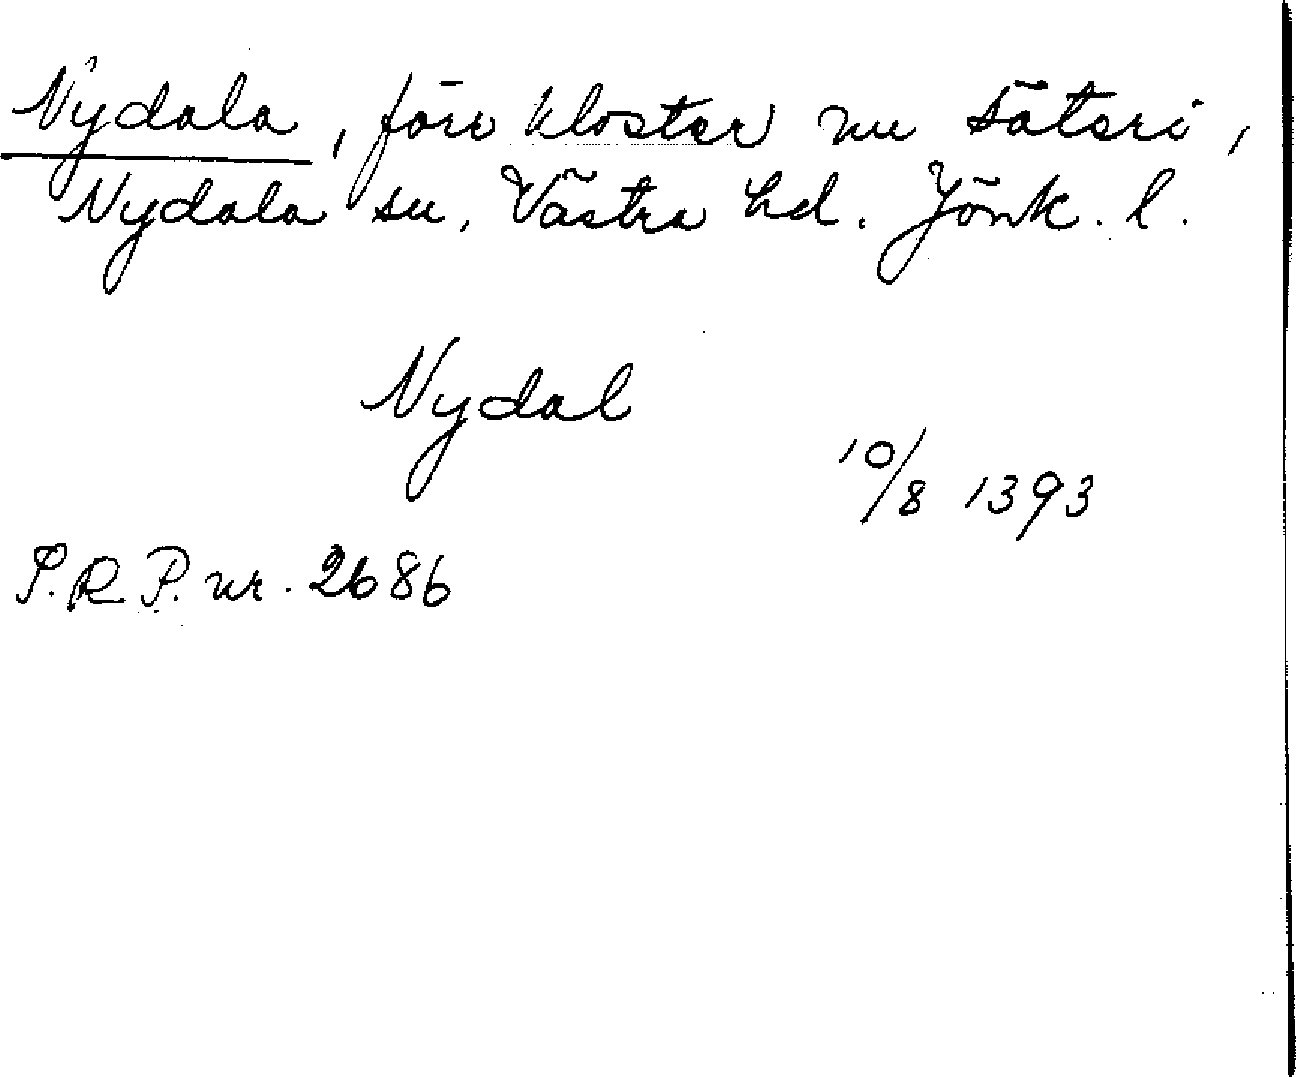 Nydala, förr kloster nu säteri,
Nydala sn, Västra hd. Jönk. l.
Nydal
10/8 1393
S.R.P. nr. 2686